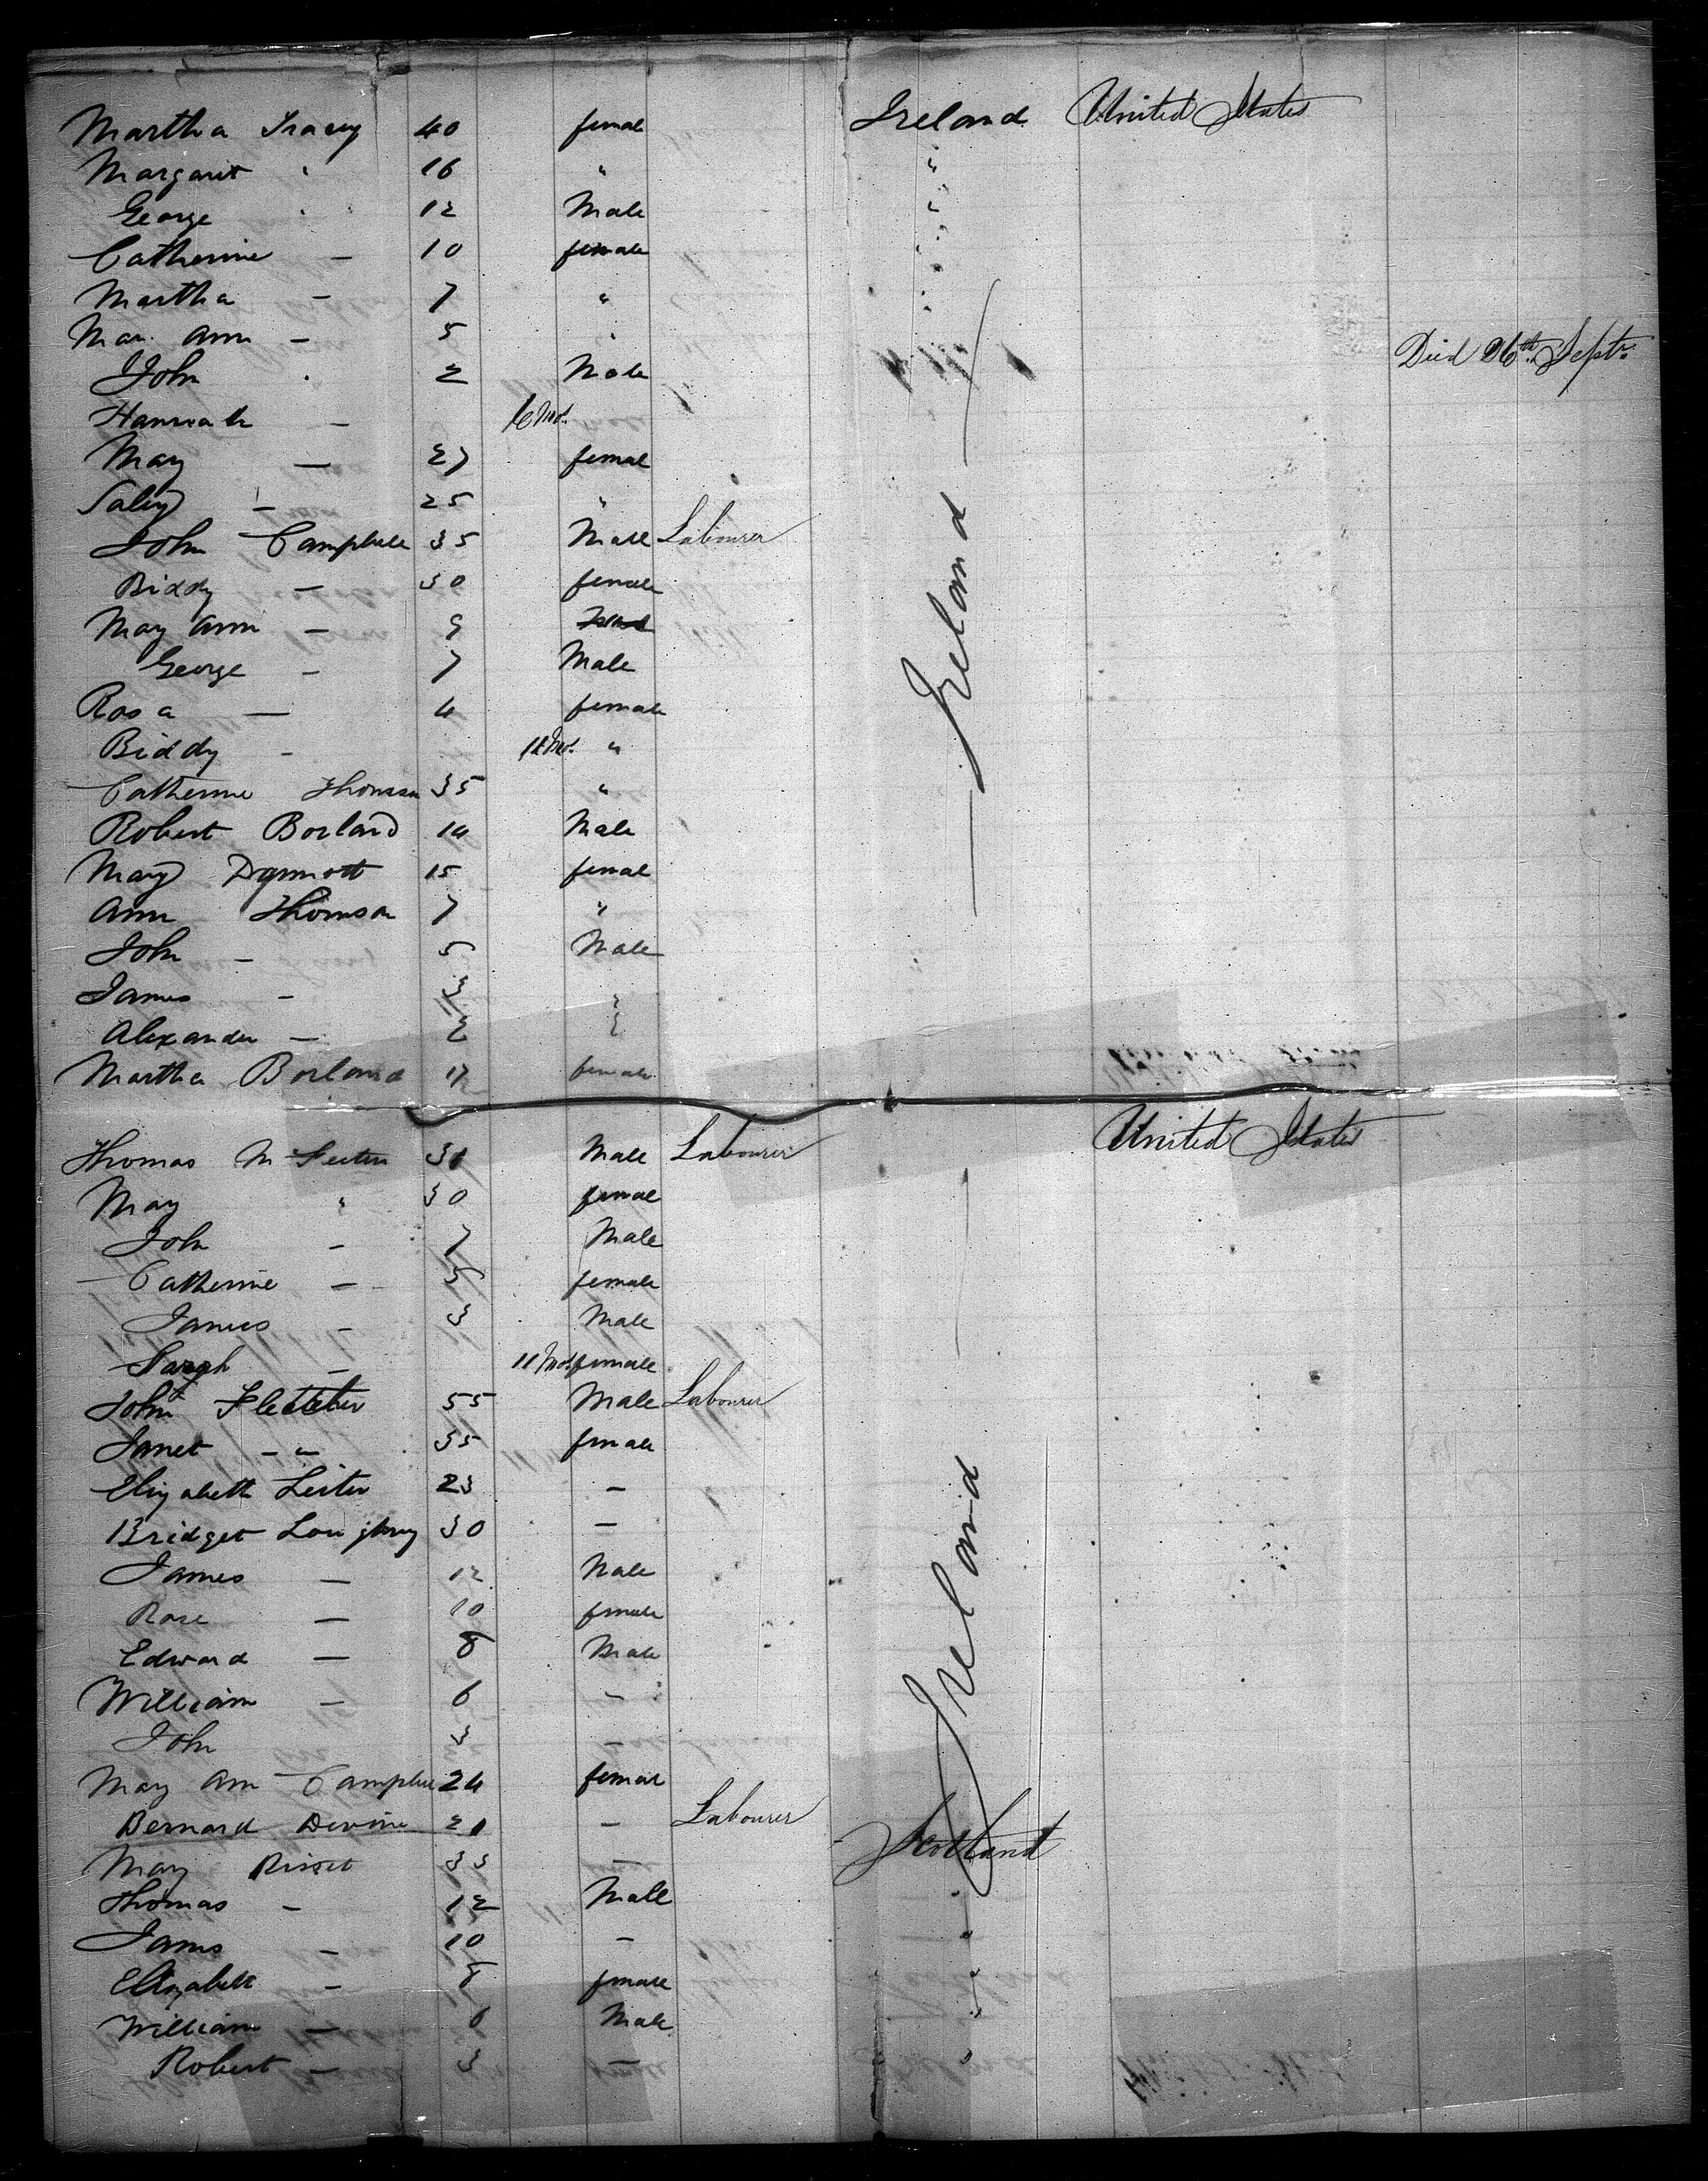 Martha Tracey 40 femal Ireland United States
Margaret " 16 " "
George " 12 Male "
Catherine — 10 female "
Martha — 7 " "
Mar. Ann — 5 "
John " 2 Male Died 26th Septr.
Hannah —
May — 27 female
Saley — 25 "
John Campbell 35 Male Labourer
Biddy — 30 female
May Ann — 9
George — 7 Male
Rosa — 4 female
Biddy — 12 Mos. "
Catherine Thomson 35 "
Robert Borland 14 Male
Mary 15 female
Ann Thomson 7 "
John — 5 Male
James — 3 "
Alexander — 2 "
Martha Borland 17 female
Ireland
Thomas 31 Male Labourer United States
May " 30 female
John — 7 Male
Catherine — 5 female
James — 3 Male
Sarah — 11 Mos. female
John Fletcher 55 Male Labourer
Janet — " 35 female
Elizabeth Leiter 23 —
Bridget 30 —
James — 12 Male
Rose — 10 female
Edward — 8 Male
William — 6 —
John 3 —
Ireland
May Ann Campbell 24 female
Bernard Devine 21 — Labourer
May 33 — Scotland
Thomas — 12 Male "
James — 10 — "
Elizabeth — 8 female "
William — 6 Male "
Robert — 3 — "